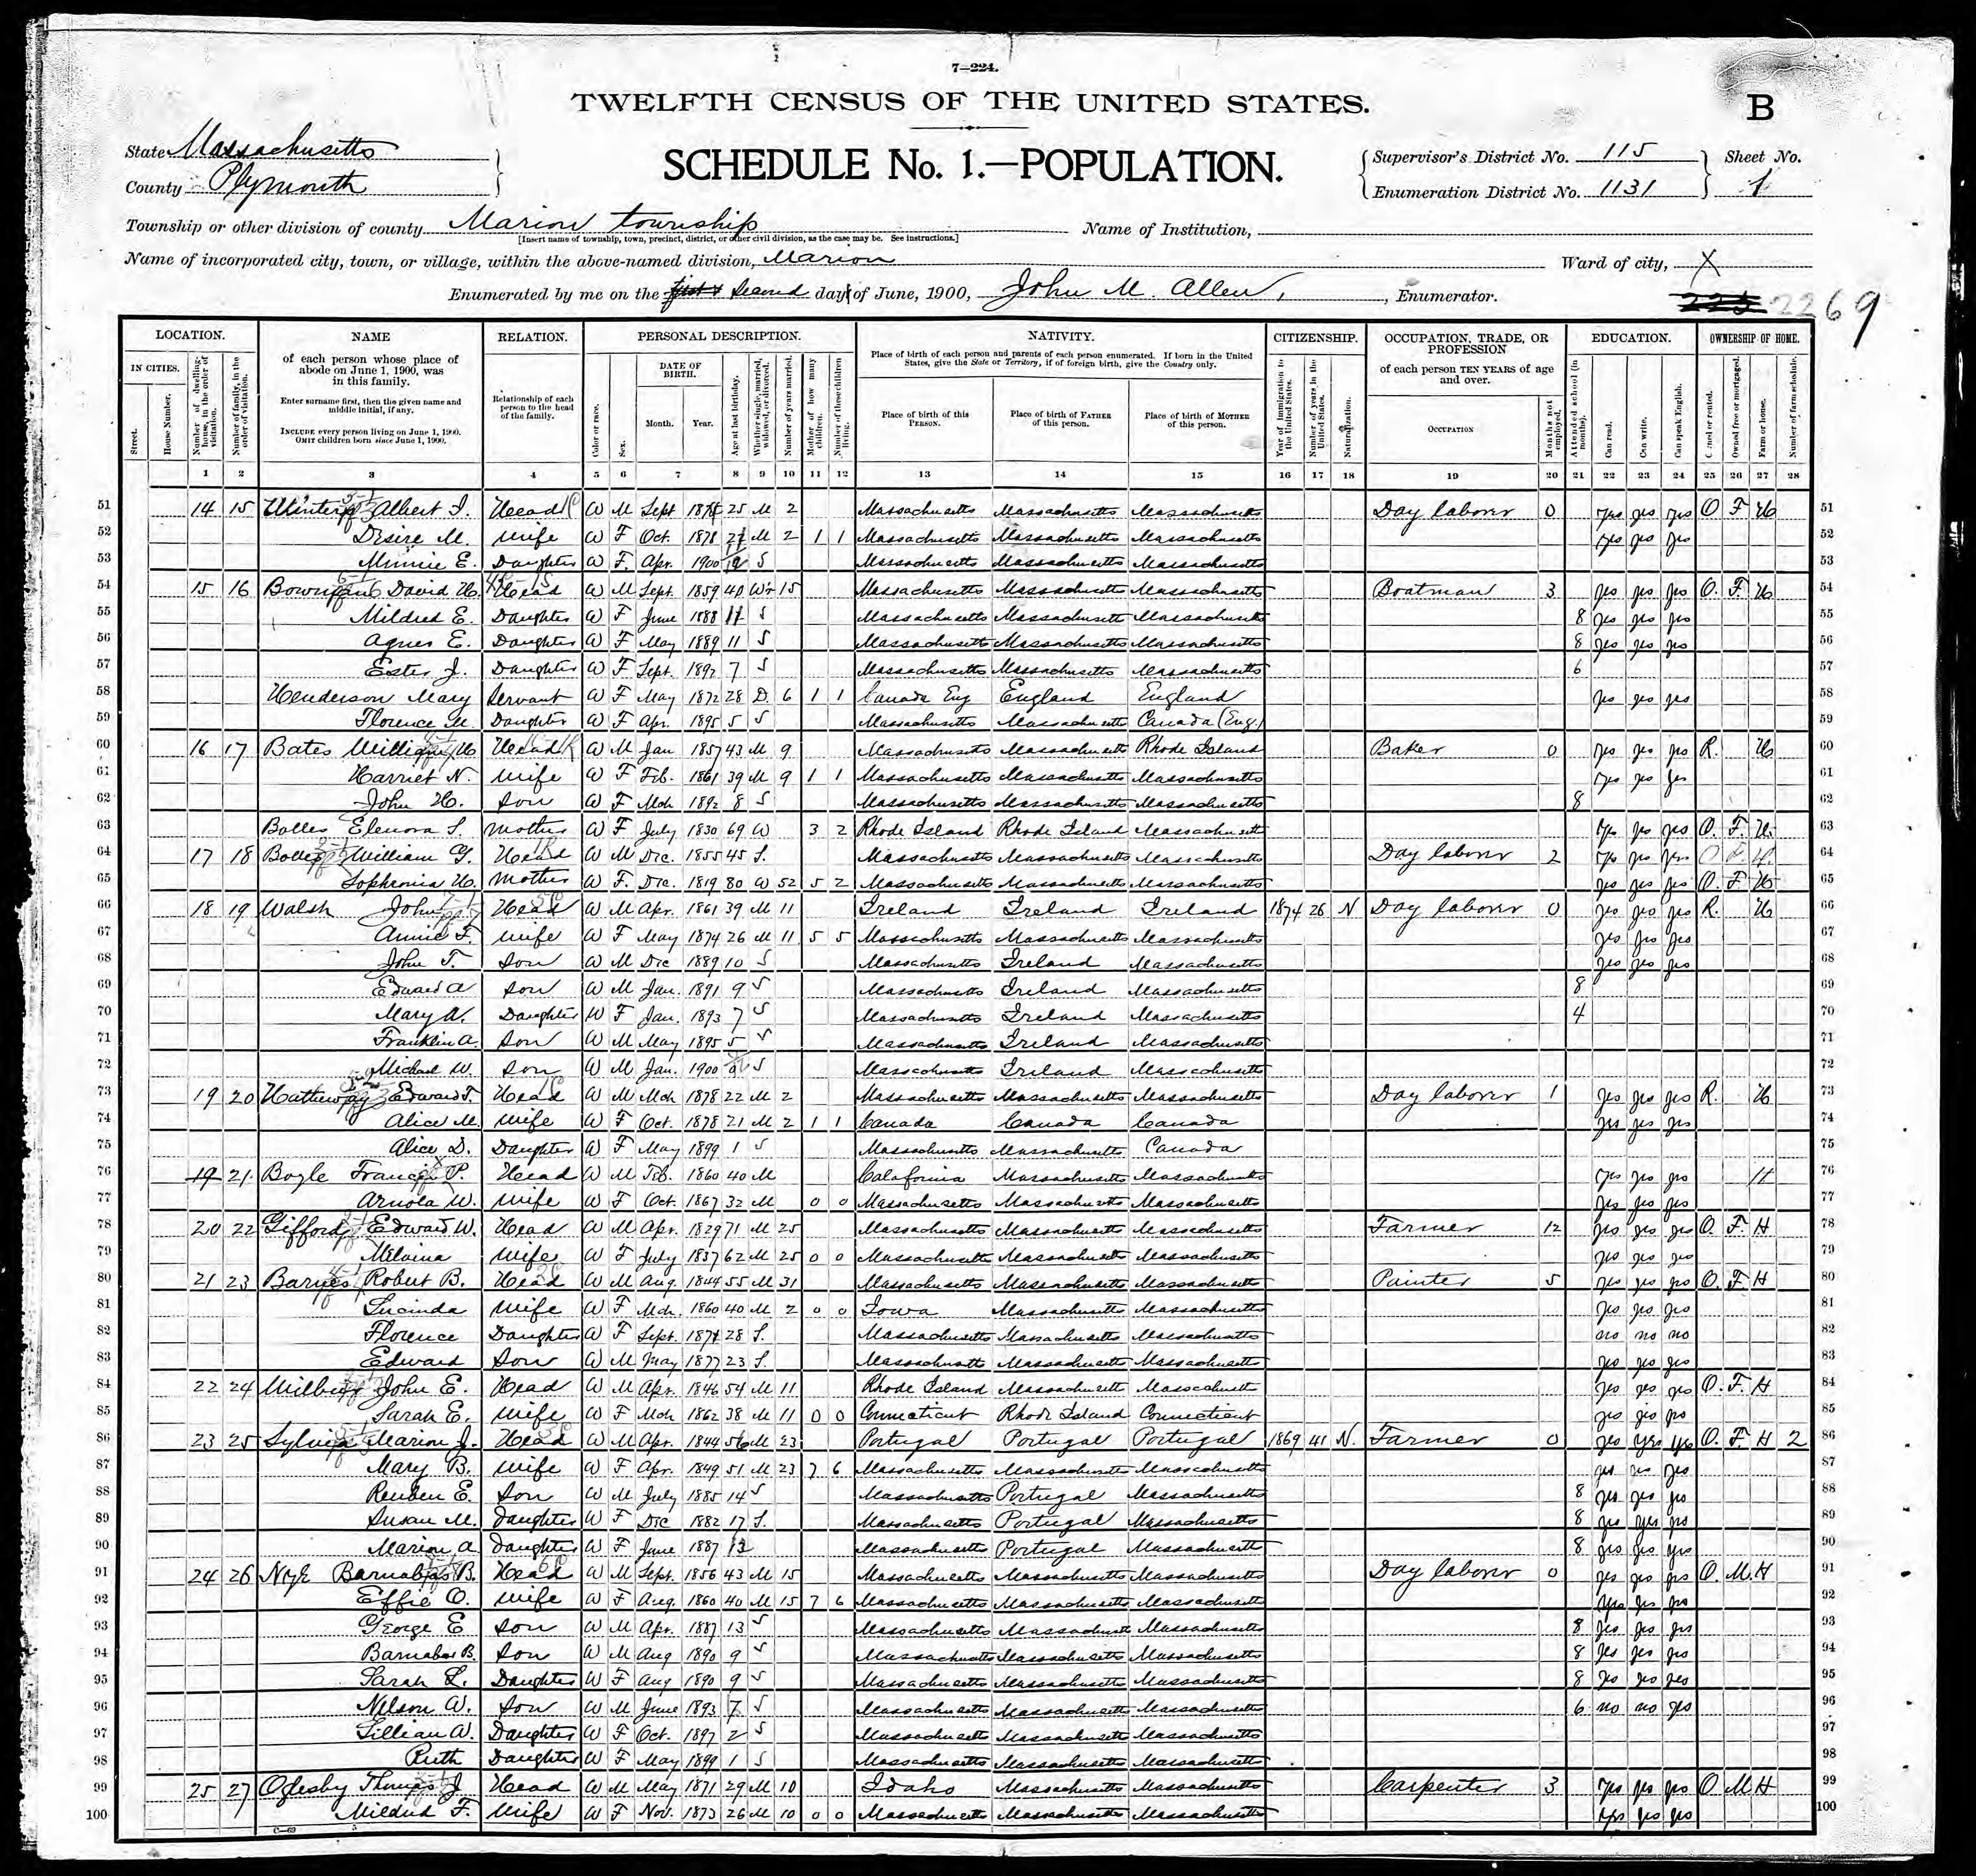 7—224.
TWELFTH CENSUS OF THE UNITED STATES.
B
State Massachusetts
SCHEDULE No. 1.—POPULATION.
Supervisor's District No. 115
Sheet No.
County Plymouth
Enumeration District No. 1131
1
Township or other division of county Marion township
Name of Institution,
[Insert name of township, town, precinct, district, or other civil division, as the case may be. See instructions.]
Name of incorporated city, town, or village, within the above-named division, Marion
Ward of city, X
Enumerated by me on the first Second day of June, 1900, John M. Allen, Enumerator.
2269
LOCATION. NAME RELATION. PERSONAL DESCRIPTION. NATIVITY. CITIZENSHIP. OCCUPATION, TRADE, OR PROFESSION EDUCATION. OWNERSHIP OF HOME.
IN CITIES.
Street.
House Number.
Number of dwelling-house, in the order of visitation.
Number of family, in the order of visitation.
of each person whose place of abode on June 1, 1900, was in this family.
Enter surname first, then the given name and middle initial, if any.
INCLUDE every person living on June 1, 1900.
OMIT children born since June 1, 1900.
Relationship of each person to the head of the family.
Color or race.
Sex.
DATE OF BIRTH.
Month. Year.
Age at last birthday.
Whether single, married, widowed, or divorced.
Number of years married.
Mother of how many children.
Number of these children living.
Place of birth of each person and parents of each person enumerated. If born in the United States, give the State or Territory, if of foreign birth, give the Country only.
Place of birth of this PERSON.
Place of birth of FATHER of this person.
Place of birth of MOTHER of this person.
Year of immigration to the United States.
Number of years in the United States.
Naturalization.
of each person TEN YEARS of age and over.
OCCUPATION
Months not employed.
Attended school (in months).
Can read.
Can write.
Can speak English.
Owned or rented.
Owned free or mortgaged.
Farm or house.
Number of farm schedule.
1 2 3 4 5 6 7 8 9 10 11 12 13 14 15 16 17 18 19 20 21 22 23 24 25 26 27 28
51 14 15 Albert Head W M Sept 25 M 2 Massachusetts Massachusetts Massachusetts Day laborer 0 yes yes yes O F H 51
52 Desire M. Wife W F Oct. 1878 M 2 1 1 Massachusetts Massachusetts Massachusetts yes yes yes 52
53 Minnie E. Daughter W F. Apr. 1900 S Massachusetts Massachusetts Massachusetts 53
54 15 16 David H. Head W M Sept. 1859 40 15 Massachusetts Massachusetts Massachusetts Boatman 3 yes yes yes O. F. H 54
55 Mildred E. Daughter W F June 1888 11 S Massachusetts Massachusetts Massachusetts 8 yes yes yes 55
56 Agnes E. Daughter W F May 1889 11 S Massachusetts Massachusetts Massachusetts 8 yes yes yes 56
57 Ester J. Daughter W F Sept. 1892 7 S Massachusetts Massachusetts Massachusetts 6 57
58 Henderson Mary Servant W F May 1872 28 D. 6 1 1 Canada Eng England England yes yes yes 58
59 Florence M. Daughter W F Apr. 1895 5 S Massachusetts Massachusetts Canada (Eng.) 59
60 16 17 Bates William H Head W M Jan 1857 43 M 9 Massachusetts Massachusetts Rhode Island Baker 0 yes yes yes R. H 60
61 Harriet N. Wife W F Feb. 1861 39 M 9 1 1 Massachusetts Massachusetts Massachusetts yes yes yes 61
62 John H. Son W F Mch 1892 8 S Massachusetts Massachusetts Massachusetts 8 62
63 Elenora S. Mother W F July 1830 69 W 3 2 Rhode Island Rhode Island Massachusetts yes yes yes O. F. H. 63
64 17 18 William G. Head W M Dec. 1855 45 S. Massachusetts Massachusetts Massachusetts Day laborer 2 yes yes yes O F. H. 64
65 Sophronia H. Mother W F. Dec. 1819 80 W 52 5 2 Massachusetts Massachusetts Massachusetts yes yes yes O. F H 65
66 18 19 Walsh John Head W M Apr. 1861 39 M 11 Ireland Ireland Ireland 1874 26 N Day laborer 0 yes yes yes R. H 66
67 Annie F. Wife W F May 1874 26 M 11 5 5 Massachusetts Massachusetts Massachusetts yes yes yes 67
68 John T. Son W M Dec 1889 10 S Massachusetts Ireland Massachusetts yes yes yes 68
69 Edward A Son W M Jan. 1891 9 S Massachusetts Ireland Massachusetts 8 69
70 Mary A. Daughter W F Jan. 1893 7 S Massachusetts Ireland Massachusetts 4 70
71 Franklin A. Son W M May 1895 5 S Massachusetts Ireland Massachusetts 71
72 Michael W. Son W M Jan. 1900 S Massachusetts Ireland Massachusetts 72
73 19 20 Hatheway Edward F. Head W M Mch 1878 22 M 2 Massachusetts Massachusetts Massachusetts Day laborer 1 yes yes yes R. H 73
74 Alice M. Wife W F Oct. 1878 21 M 2 1 1 Canada Canada Canada yes yes yes 74
75 Alice D. Daughter W F May 1899 1 S Massachusetts Massachusetts Canada 75
76 19 21 Boyle Francis P. Head W M Feb. 1860 40 M Calafornia Massachusetts Massachusetts yes yes yes H 76
77 W. Wife W F Oct. 1867 32 M 0 0 Massachusetts Massachusetts Massachusetts yes yes yes 77
78 20 22 Gifford Edward W. Head W M Apr. 1829 71 M 25 Massachusetts Massachusetts Massachusetts Farmer 12 yes yes yes O. F. H 78
79 Melvina Wife W F July 1837 62 M 25 0 0 Massachusetts Massachusetts Massachusetts yes yes yes 79
80 21 23 Barnes Robert B. Head W M Aug. 1844 55 M 31 Massachusetts Massachusetts Massachusetts Painter 5 yes yes yes O. F. H 80
81 Lucinda Wife W F Mch. 1860 40 M 2 0 0 Iowa Massachusetts Massachusetts yes yes yes 81
82 Florence Daughter W F Sept. 28 S. Massachusetts Massachusetts Massachusetts no no no 82
83 Edward Son W M May 1877 23 S. Massachusetts Massachusetts Massachusetts yes yes yes 83
84 22 24 John E. Head W M Apr. 1846 54 M 11 Rhode Island Massachusetts Massachusetts yes yes yes O. F. H 84
85 Sarah E. Wife W F Mch 1862 38 M 11 0 0 Connecticut Rhode Island Connecticut yes yes yes 85
86 23 25 Sylvia Marion J. Head W M Apr. 1844 56 M 23 Portugal Portugal Portugal 1869 41 N. Farmer 0 yes yes yes O. F. H 2 86
87 Mary B. Wife W F Apr. 1849 51 M 23 7 6 Massachusetts Massachusetts Massachusetts yes yes yes 87
88 Reuben E. Son W M July 1885 14 S Massachusetts Portugal Massachusetts 8 yes yes yes 88
89 Susan M. Daughter W F Dec 1882 17 S. Massachusetts Portugal Massachusetts 8 yes yes yes 89
90 Marion A Daughter W F June 1887 Massachusetts Portugal Massachusetts 8 yes yes yes 90
91 24 26 Nye Barnabas B. Head W M Sept. 1856 43 M 15 Massachusetts Massachusetts Massachusetts Day laborer 0 yes yes yes O. M. H 91
92 Effie O. Wife W F Aug. 1860 40 M 15 7 6 Massachusetts Massachusetts Massachusetts yes yes yes 92
93 George E Son W M Apr. 1887 13 S Massachusetts Massachusetts Massachusetts 8 yes yes yes 93
94 Barnabas B. Son W M Aug 1890 9 S Massachusetts Massachusetts Massachusetts 8 yes yes yes 94
95 Sarah L. Daughter W F Aug 1890 9 S Massachusetts Massachusetts Massachusetts 8 yes yes yes 95
96 Nelson W. Son W M June 1893 7 S Massachusetts Massachusetts Massachusetts 6 no no yes 96
97 Lillian W. Daughter W F Oct. 1897 2 S Massachusetts Massachusetts Massachusetts 97
98 Ruth Daughter W F May 1899 1 S Massachusetts Massachusetts Massachusetts 98
99 25 27 Oglesby Thomas J. Head W M May 1871 29 M 10 Idaho Massachusetts Massachusetts Carpenter 3 yes yes yes O M H 99
100 Mildred F. Wife W F Nov. 1873 26 M 10 0 0 Massachusetts Massachusetts Massachusetts yes yes yes 100